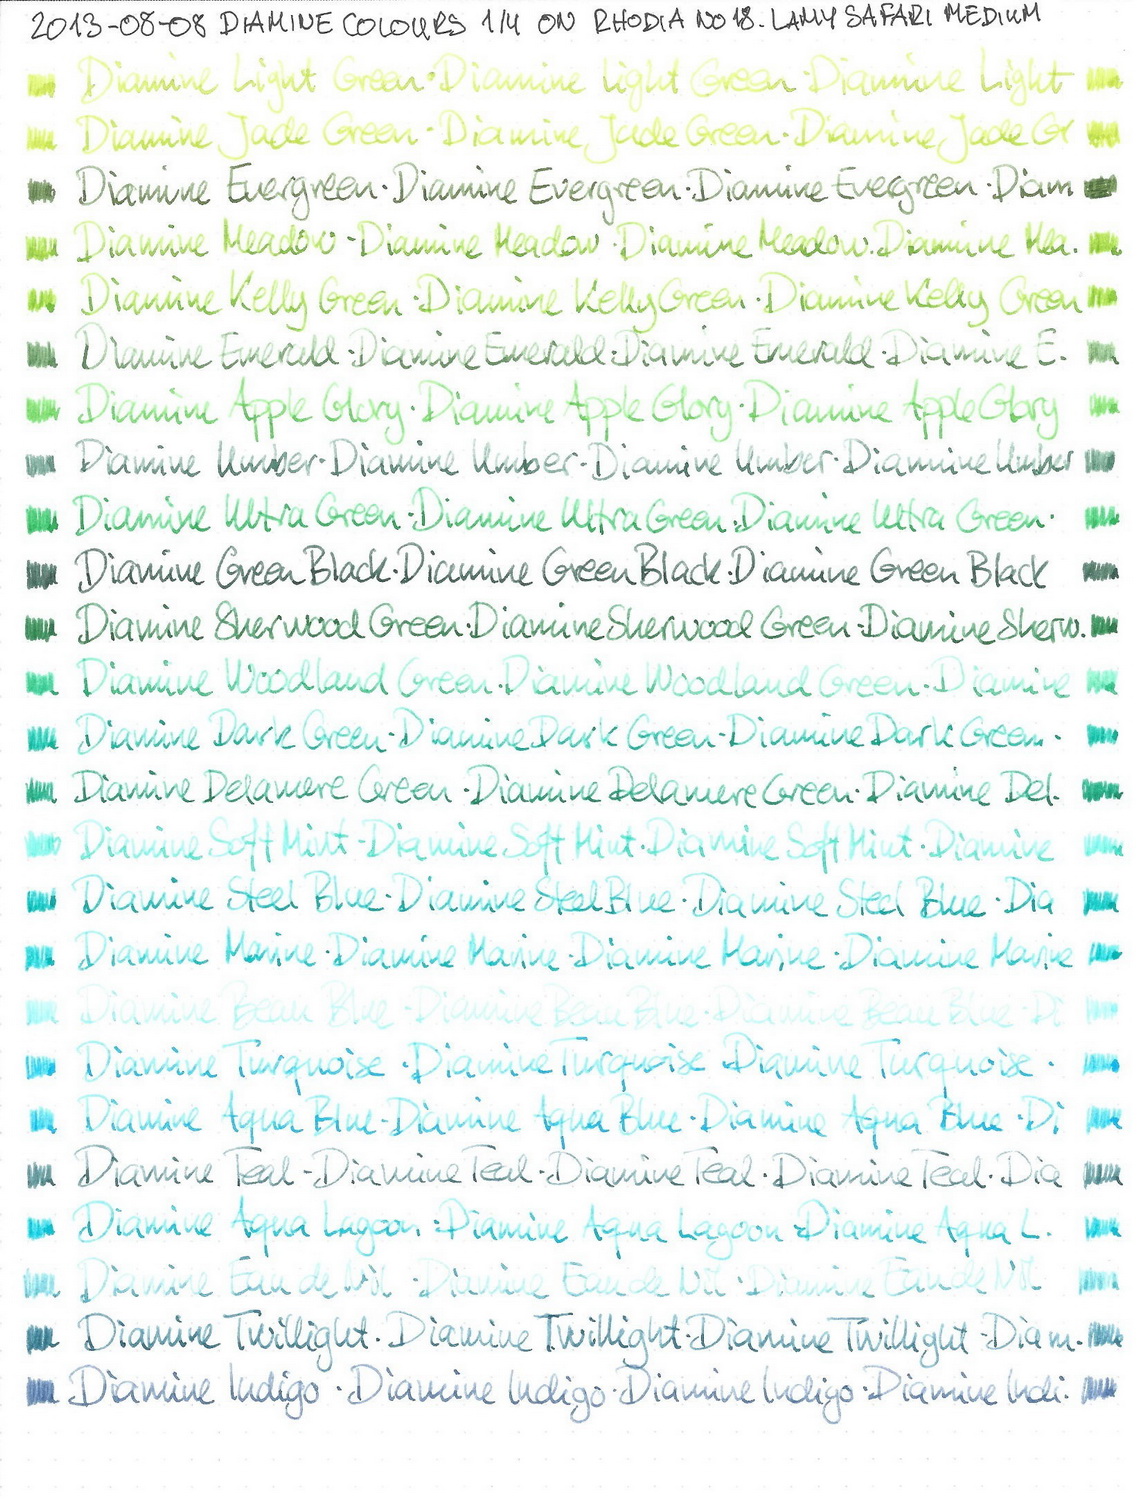 2013-08-08 DIAMINE COLOURS 1/4 ON RHODIA NO 18. LAMY SAFARI MEDIUM
Diamine Light Green·Diamine Light Green·Diamine Light
Diamine Jade Green·Diamine Jade Green·Diamine Jade Gr
Diamine Evergreen·Diamine Evergreen·Diamine Evergreen·Diam
Diamine Meadow-Diamine Meadow·Diamine Meadow.Diamine Mea.
Diamine Kelly Green·Diamine Kelly Green·Diamine Kelly Green
Diamine Emerald·Diamine Emerald·Diamine Emerald·Diamine E.
Diamine Apple Glory·Diamine Apple Glory·Diamine Apple Glory
Diamine Umber·Diamine Umber·Diamine Umber·Diamine Umber
Diamine Ultra Green·Diamine Ultra Green·Diamine Ultra Green·
Diamine Green Black·Diamine Green Black·Diamine Green Black
Diamine Sherwood Green·Diamine Sherwood Green·Diamine Sherw.
Diamine Woodland Green·Diamine Woodland Green·Diamine
Diamine Dark Green·Diamine Dark Green-Diamine Dark Green·
Diamine Delamere Green·Diamine Delamere Green·Diamine Del.
Diamine Soft Mint-Diamine Soft Mint·Diamine Soft Mint·Diamine
Diamine Steel Blue·Diamine Steel Blue·Diamine Steel Blue·Dia
Diamine Marine·Diamine Marine·Diamine Marine·Diamine Marine
Diamine Beau Blue·Diamine Beau Blue·Diamine Beau Blue·Di
Diamine Turquoise·Diamine Turquoise·Diamine Turquoise·
Diamine Aqua Blue-Diamine Aqua Blue·Diamine Aqua Blue·Di
Diamine Teal-Diamine Teal-Diamine Teal·Diamine Teal·Dia
Diamine Aqua Lagoon·Diamine Aqua Lagoon·Diamine Aqua L.
Diamine Eau de Nil·Diamine Eau de Nil·Diamine Eau de Nil
Diamine Twillight·Diamine Twillight·Diamine Twillight·Diam.
Diamine Indigo·Diamine Indigo·Diamine Indigo·Diamine Indi.